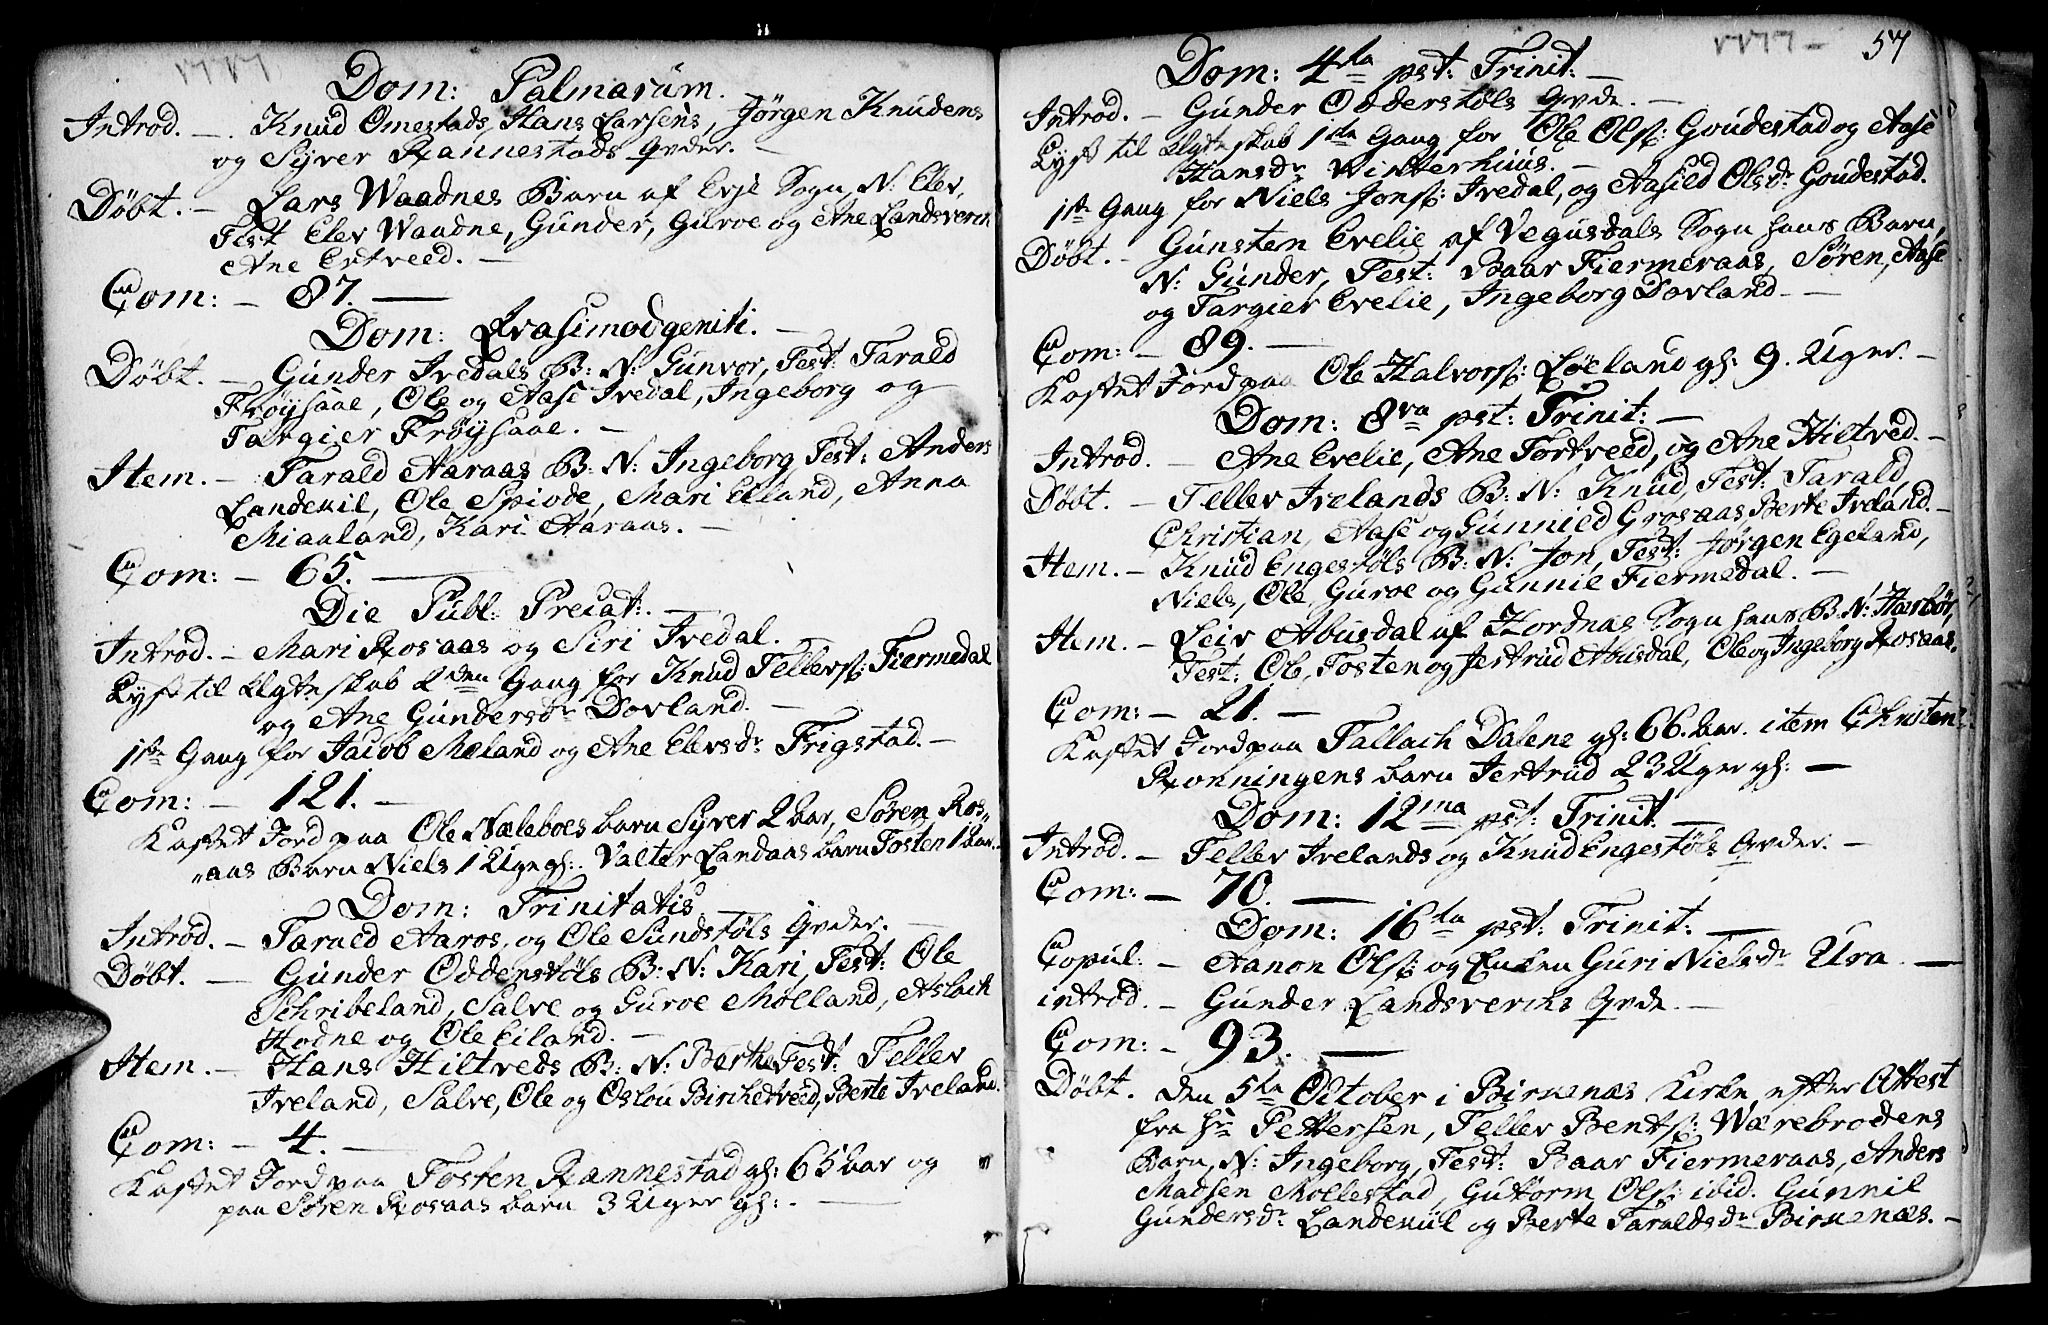 Dom: Palmarum.
Introd. — Knud Omestads, Hans Larsens, Jørgen Knudens
og Syver Rannestads Qvder. —
Døbt. — Lars Waadnes Barn af Evje Sogn, N: Elev,
Test Elev Waadne, Gunder, Guroe og Ane Landsverck
Ane Ertveed. —
Com: — 87. —
Dom: Qvasimodgeniti. —
Døbt. — Gunder Ivedals B: N: Gunvor, Test: Tarald
Frøysaae, Ole og Aase Ivedal, Ingeborg og
Targier Frøysaae. —
Item. — Tarald Aaraas B: N: Ingeborg Test: Anders
Landevil, Ole Spiode, Mari Eiland, Anna
Miaaland, Kari Aaraas. —
Com: — 65. —
Die Publ: Precat: —
Introd. — Mari Rosaas og Siri Ivedal. —
Lyst til Egteskab 2den Gang for Knud Tellevs: Fiermedal
og Ane Gundersdr Dovland. —
1ste Gang for Jacob Mæland og Ane Elevsdr Frigstad. —
Com: — 121. —
Kastet Jord paa Ole Næleboes barn Syver 2 Aar, Søren Ros„
„aas Barn Niels 1 Uge gl: Valter Landaas barn Tosten 1 Aar.
Dom: Trinitatis
Introd. — Tarald Aaros, og Ole Sundstøls Qvder. —
Døbt. — Gunder Oddenstøls B: N: Kari, Test: Ole
Schribeland, Salve og Guroe Molland, Aslach
Hodne og Ole Eiland. —
Item. — Hans Hiltveds B: N: Berthe Test: Tellev
Ireland, Salve, Ole og Oslou Birchetveed, Berte Ireland.
Com: — 4. —
Kastet Jord paa Tosten Rannestad gl: 65 Aar og
paa Søren Rosaas barn 3 Uger gl: —
57
Dom: 4ta pst: Trinit: —
Introd. — Gunder Odderstøls Qvde. —
Lyst til Egteskab 1ste Gang for Ole Ols: Goudestad og Aase
Hansdr Winterhuus. —
1ste Gang for Niels Jons: Ivedal, og Aasild Olsdr Goudestad.
Døbt. — Gunsten Evelie af Vegusdals Sogn hans Barn,
N: Gunder, Test: Baar Fiermeraas, Søren, Aase
og Targier Evelie, Ingeborg Dovland. —
Com: — 89. —
Kastet Jord paa Ole Halvors: Løeland gl: 9. Uger. —
Dom: 8va pst: Trinit: —
Introd. — Ane Evelie, Ane Tortveed, og Ane Hiltved. —
Døbt. — Tellev Irelands B: N: Knud, Test: Tarald,
Christian, Aase og Gunnied Grosaas Berte Ireland. —
Item. — Knud Engestøls B: N: Jon, Test: Jørgen Egeland,
Niels, Ole, Guroe og Gunnil Fiermedal. —
Item. — Leiv Abusdal af Hordnæs Sogn hans B: N: Haabør,
Test: Ole, Tosten og Jertrud Abusdal, Ole og Ingeborg Rosaas.
Com: — 21. —
Kastet Jord paa Tallach Dalene gl: 66. Aar. item Christen
Rønningens barn Jertrud 23 Uger gl: —
Dom: 12ma pst: Trinit: —
Introd. — Tellev Irelands og Knud Engestøls Qvder. —
Com: — 70. —
Dom: 16ta pst: Trinit: —
Copul: — Aanon Ols: og Enken Guri Nielsdr Ura. —
introd. — Gunder Landsvercks Qvde. —
Com: — 93. —
Døbt. den 5te October i Birkenæs Kirke, efter Attest
fra Hr Pettersen, Tellev Bents: Wærebrodens
Barn, N: Ingeborg, Test: Baar Fiermeraas, Anders
Madsen Mollestad, Guttorm Ols: ibid. Gunnil
Gundersdr Landevil og Berte Taraldsdr Birkenæs. —